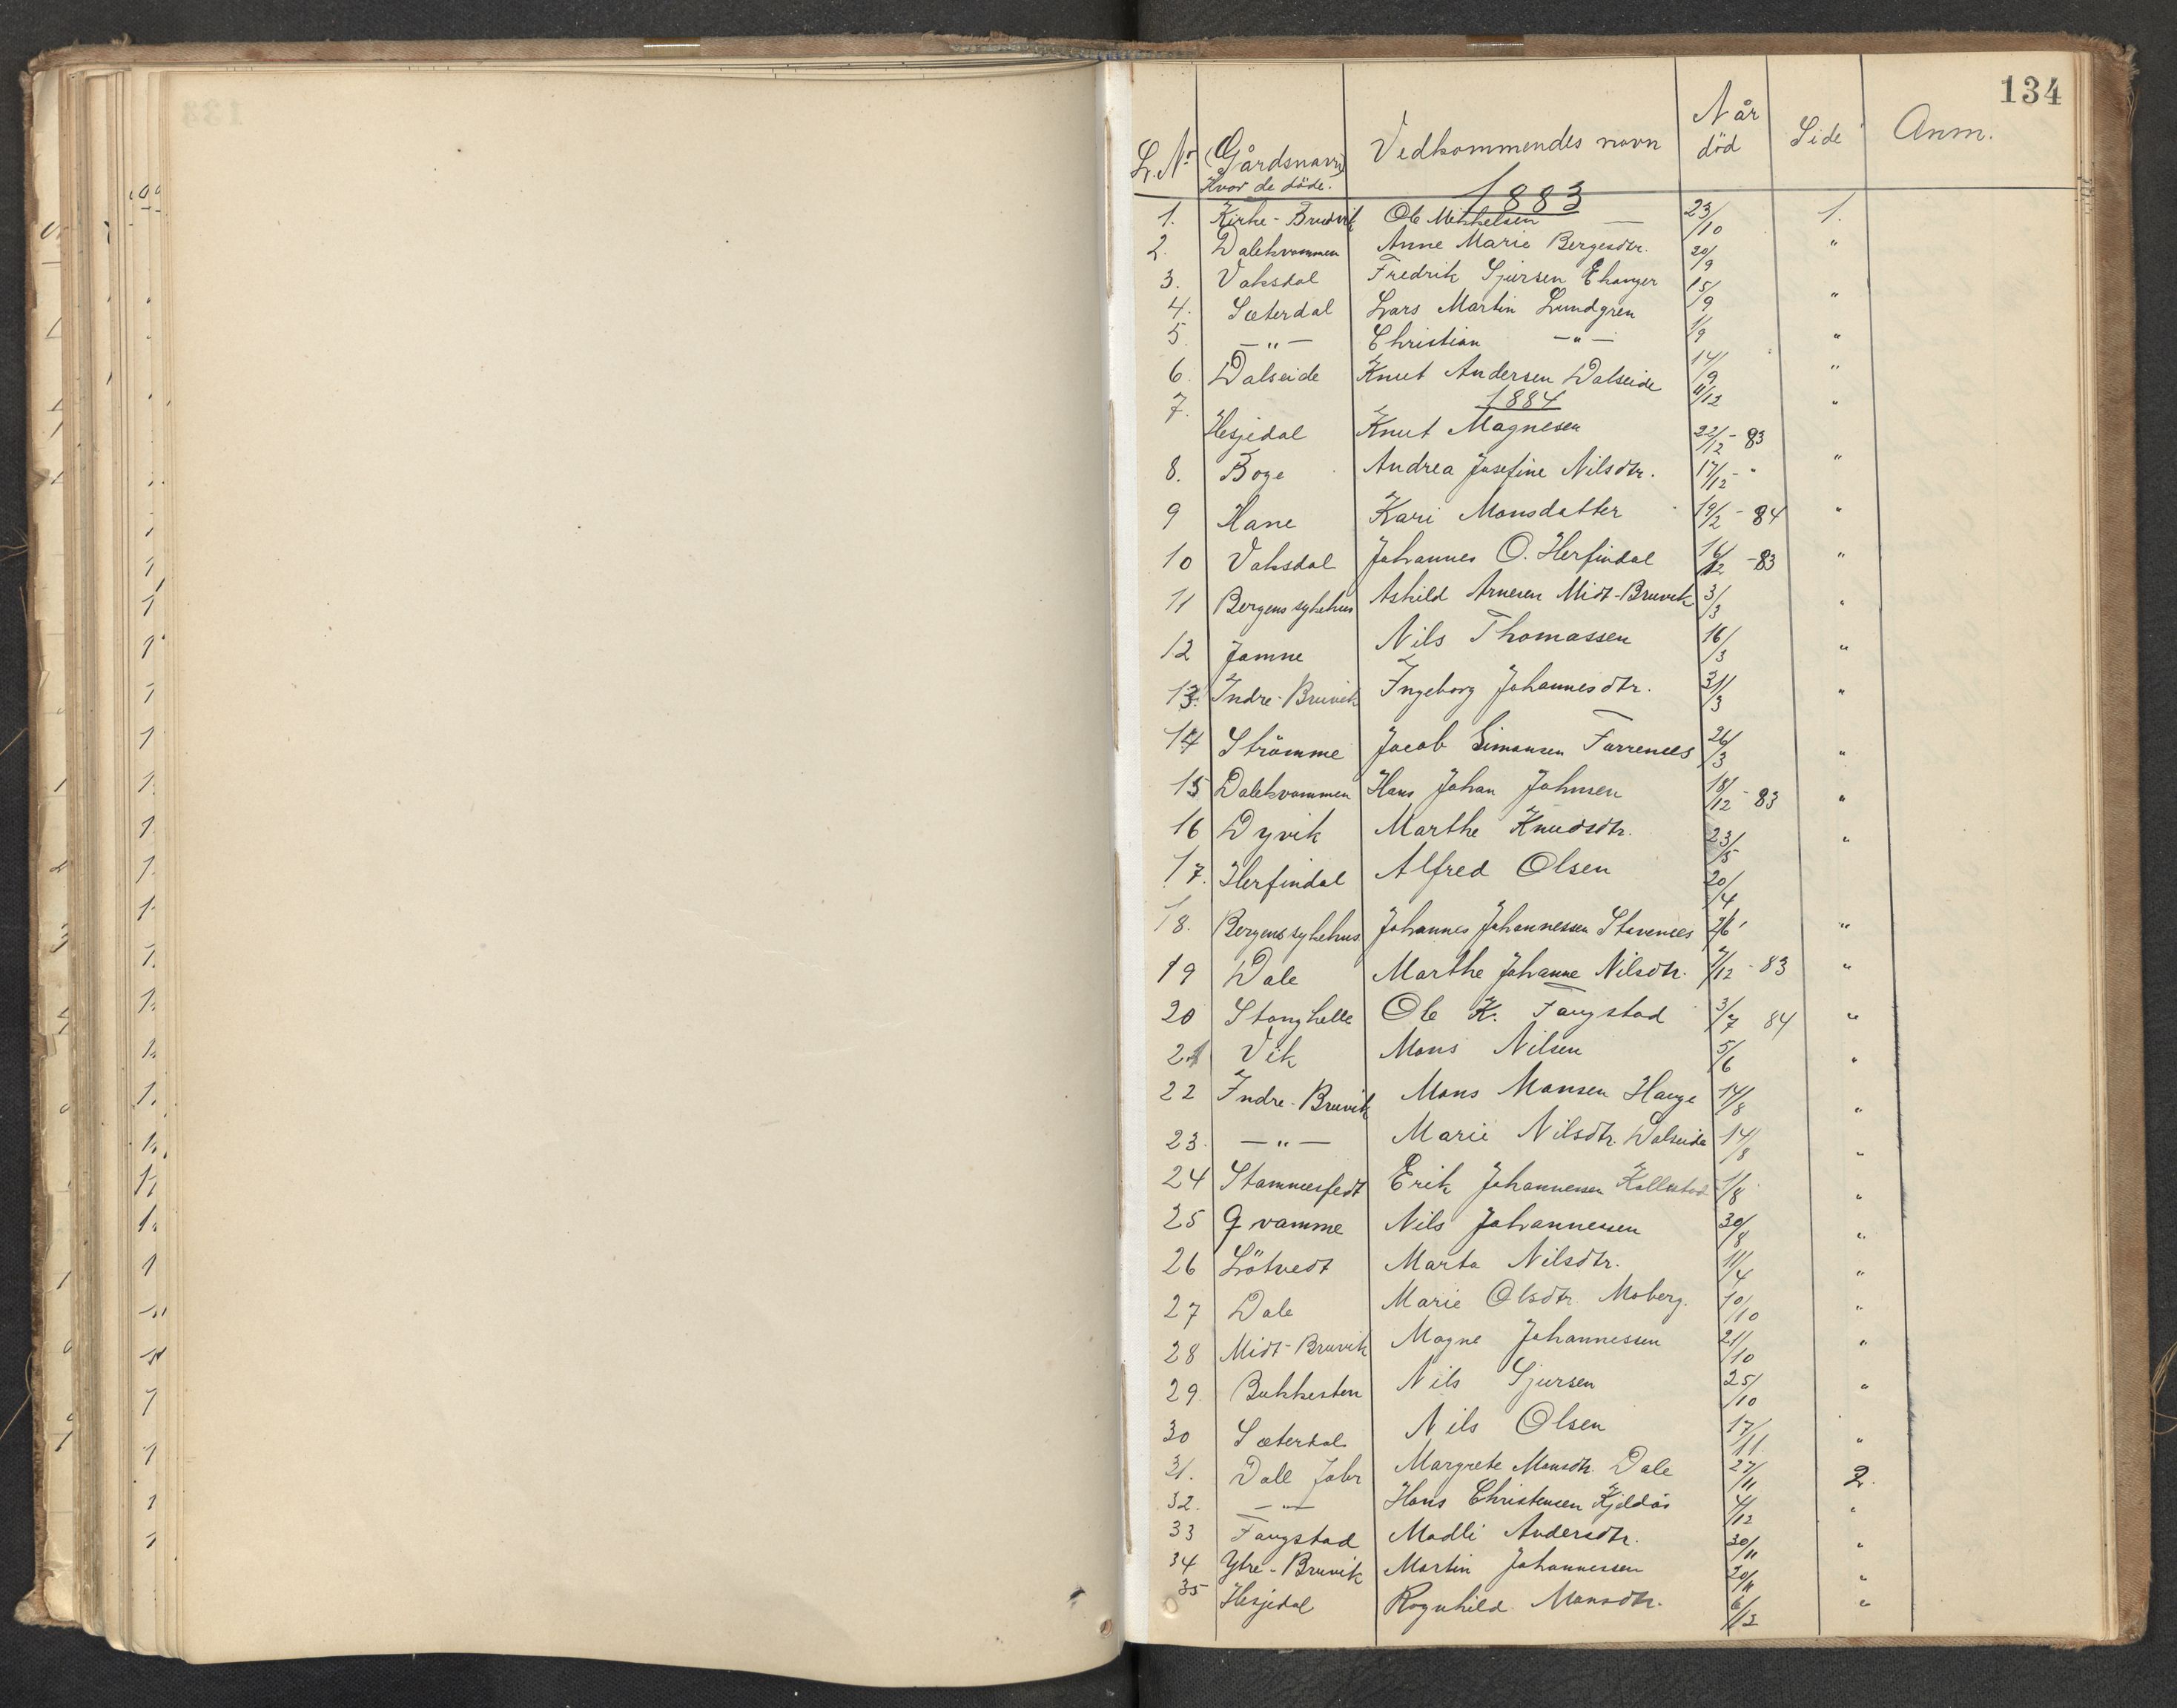 134
L. Nr. (Gårdsnavn) Hvor de döde. Vedkommendes navn Når död Side Anm.
1883
1. Kirke-Bruvik Ole Mikkelsen — 23/10 1.
2. Dalekvammen Anne Marie Bergesdtr. 20/9 "
3. Vaksdal Fredrik Sjursen Ekanger 15/9 "
4. Sæterdal Lars Martin Lundgren 1/9 "
5. —"— Christian —"— 14/9 "
6. Dalseide Knut Andersen Dalseide 11/12 "
1884
7. Hesjedal Knut Magnesen 22/12 - 83 "
8. Boge Andrea Josefine Nilsdtr. 17/12 - "
9 Hane Kari Monsdatter 19/2 - 84 "
10 Vaksdal Johannes O. Herfindal 16/12 - 83 "
11 Bergens sykehus Askild Arnesen Midt-Bruvik 3/3 "
12 Jamne Nils Thomassen 16/3 "
13. Indre-Bruvik Ingeborg Johannesdtr. 31/3 "
14 Strömme Jacob Simonsen Farrenes 26/3 "
15 Dalekvammen Hans Johan Johnsen 18/12 - 83 "
16 Dyvik Marthe Knudsdtr. 23/5 "
17. Herfindal Alfred Olsen 20/4
18. Bergens sykehus Johannes Johannessen Stavenes "
19 Dale Marthe Johanne Nilsdtr. 7/12 - 83 "
20 Stanghelle Ole K. Fangstad 3/7 84 "
21 Vik Mons Nilsen 5/6 "
22 Indre-Bruvik Mons Monsen Hauge 14/8 "
23. —"— Marie Nilsdtr. Dalseide 14/8 "
24 Erik Johannesen Kallestad 1/8 "
25 Qvamme Nils Johannesen 30/8 "
26 Lötvedt Marta Nilsdtr. 11/4 "
27 Dale Marie Olsdtr. Moberg. 10/10 "
28 Midt-Bruvik Magne Johannessen 21/10 "
29. Bukkesten Nils Sjursen 25/10 "
30 Sæterdal Nils Olsen 17/11 "
31. Dale Fabr Margrete Monsdtr. Dale 27/11 2.
32. —"— Hans Christensen Kjeldås 4/12 "
33 Fangstad Madli Andersdtr. 30/11 "
34 Ytre-Bruvik Martin Johannessen 20/11 "
35 Hesjedal Ragnhild Monsdtr. 6/12 "